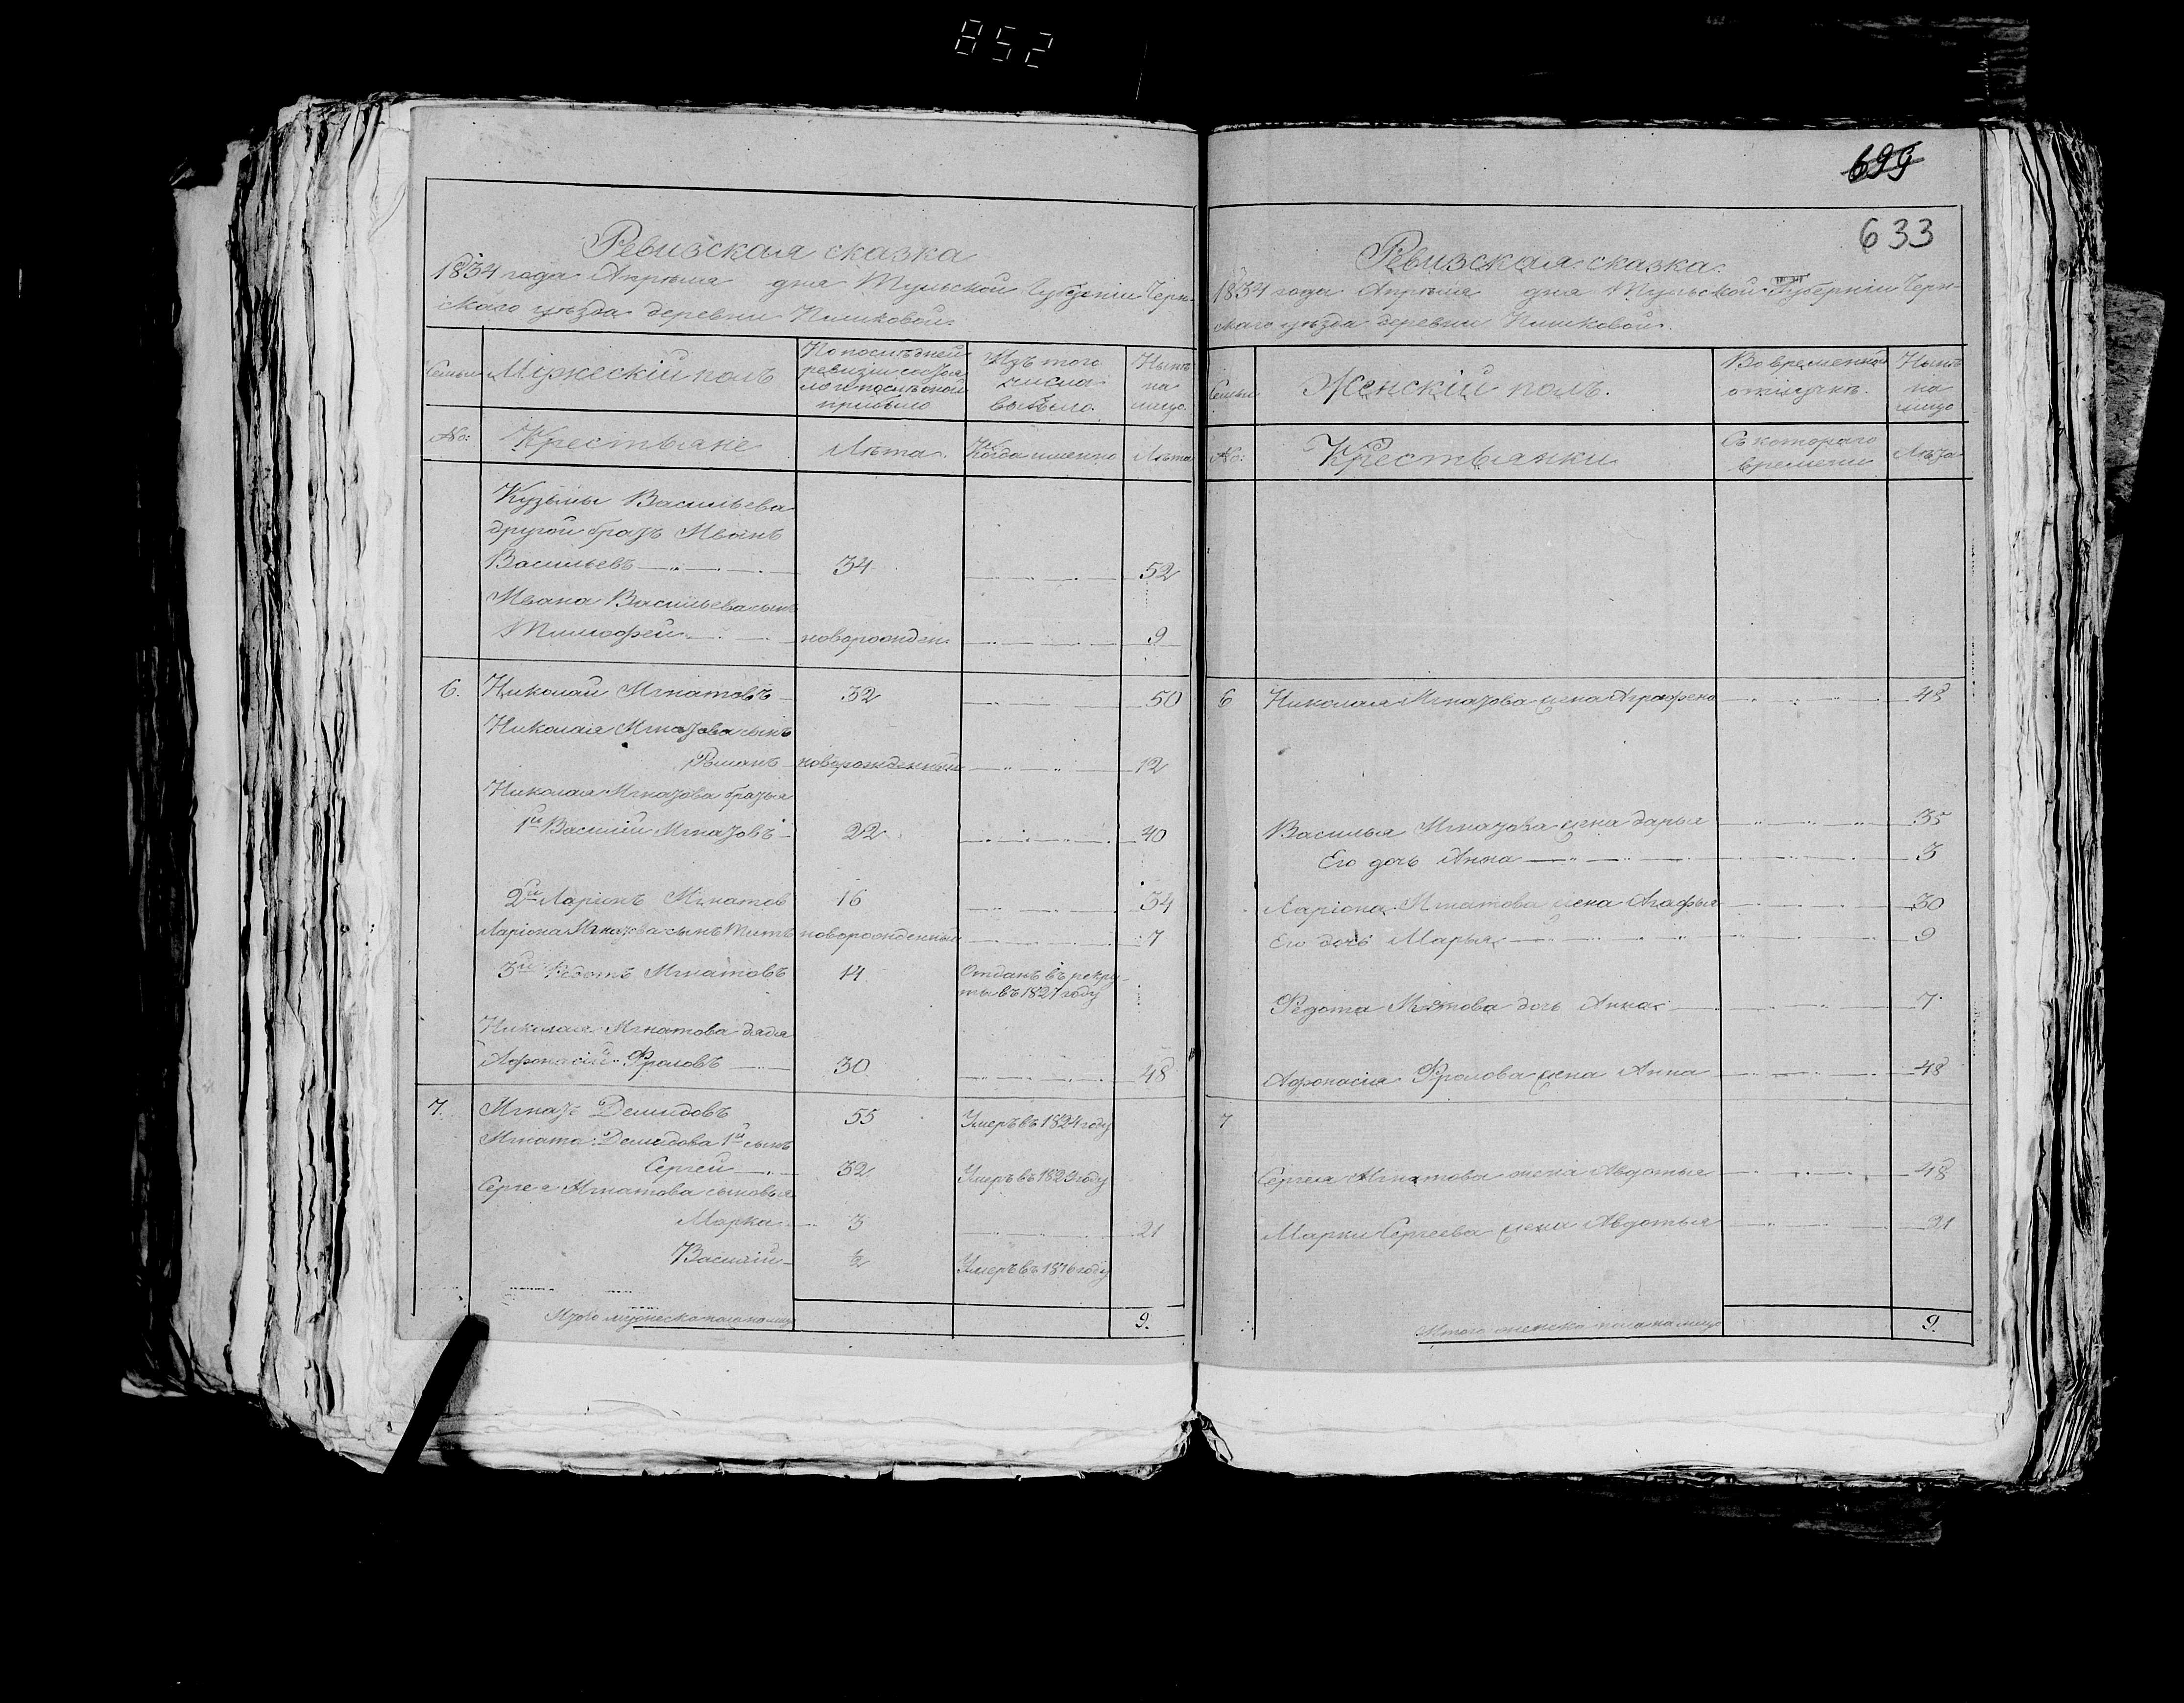 852
Ревизская сказка
1834 года Апреля дня Тульской Губерніи Черн-
скаго уезда деревни
Семьи
Мужескій полъ
По последней
ревизіи состоя
ло и после оной
прибыло
Изъ того
числа
выбыло
Ныне
на
лицо
№:
Крестьяне
Лѣта
Когда именно
Лѣта
Кузьмы Васильева
другой братъ Иванъ
Васильевъ 34 52
Ивана Васильева сынъ
Тимофей новорожден. 9
6. Николай Игнатовъ 32 50
Николая Игнатова сынъ
Романъ новорожденный 12
Николая Игнатова братья
1й Василій Игнатовъ 22 40
2й Ларіонъ Игнатов 16 34
Ларіона Игнатова сынъ Титъ новорожденный 7
3й Федотъ Игнатовъ 14 Отданъ въ рекру-
ты въ 1827 году
Николая Игнатова дядя
Афонасій Фроловъ 30 48
7. Игнатъ Демидовъ 55 Умеръ въ 1824 году
Игната Демидова 1й сынъ
Сергей 32 Умеръ въ 1829 году
Сергея Игнатова сыновья
Марка 3 21
Василій ½ Умеръ въ 1816 году
Итого мужеска пола на лицо 9.
699
633
Ревизская сказка
1834 года Апреля дня Тульской Губерніи Черн-
скаго уезда деревни
Семьи
Женскій полъ.
Во временной
отлучкѣ.
Ныне
на
лицо
№:
Крестьянки
Съ котораго
времени
Лѣта
6 Николая Игнатова жена Аграфена 48
Василья Игнатова жена дарья 35
Его дочь Анна 3
Ларіона Игнатова жена Агафья 30
Его дочь Марья 9
Федота Игнатова дочь Анна 7
Афонасія Фролова жена Анна 48
7
Сергея Игнатова жена Авдотья 48
Марки Сергеева жена Авдотья 21
Итого женска пола на лицо 9.